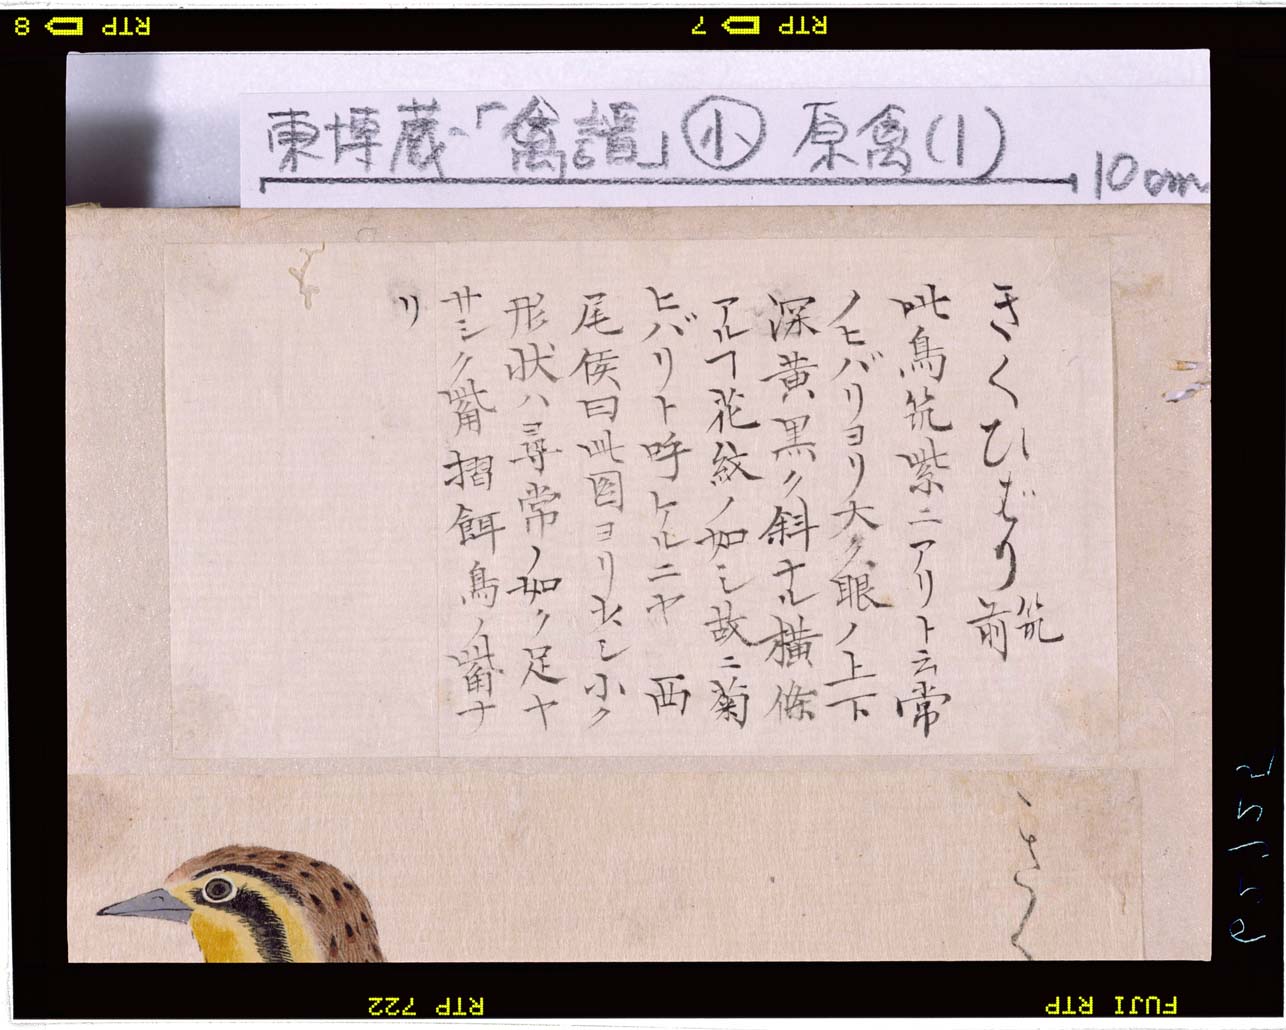 RTP 7
RTP 8
東博蔵「禽譜」小 原禽(1)
10cm
きくひばり 筑前
此鳥筑紫ニアリト云常
ノヒバリヨリ大ク眼ノ上下
深黄黒ク斜ナル横條
アルヿ花紋ノ如シ故ニ菊
ヒバリト呼ケルニヤ 西
尾侯曰此圖ヨリ少シ小ク
形状ハ尋常ノ如ク足ヤ
サシク觜摺餌鳥ノ觜ナ
リ
きく
FUJI RTP
RTP 722